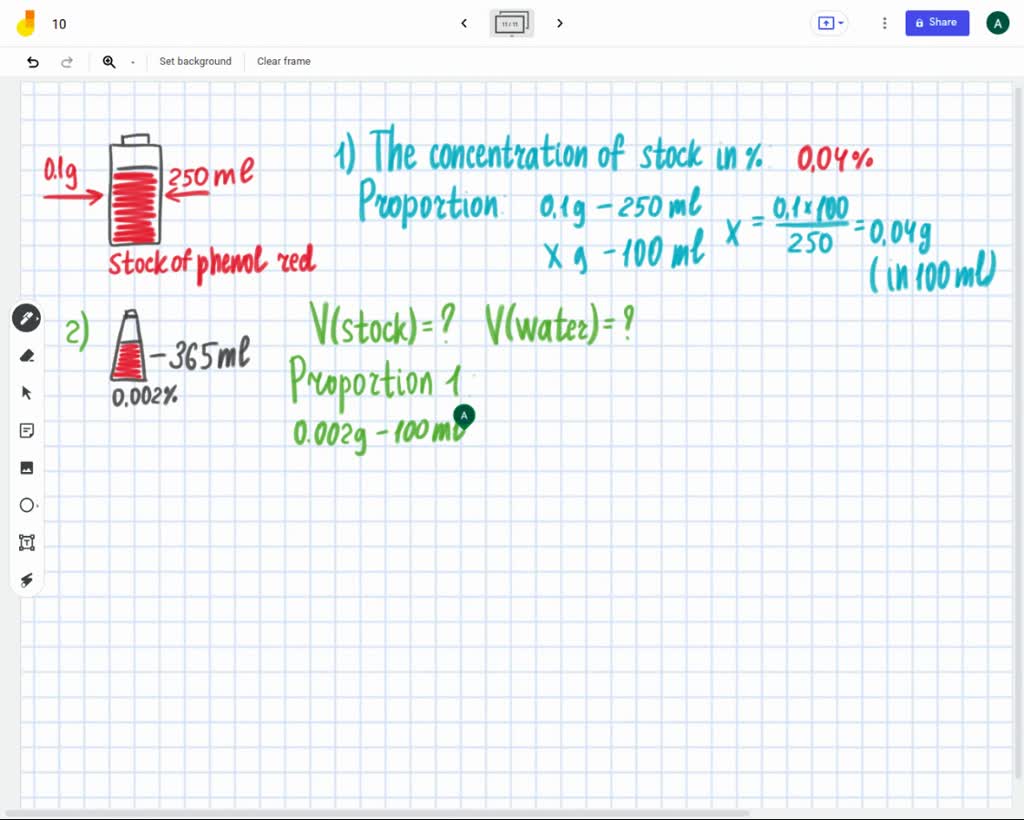 10
11 / 11
Share
A
Set background
Clear frame
0.1g
250 ml
Stock of phenol red
1) The concentration of stock in % 0,04%
Proportion: 0,1g – 250 ml
x g – 100 ml
x = 0,1 × 100 / 250 = 0,04g
(in 100 ml)
2)
– 365 ml
0,002%
V(stock) = ? V(water) = ?
Proportion 1
0.002g – 100 ml
A
T